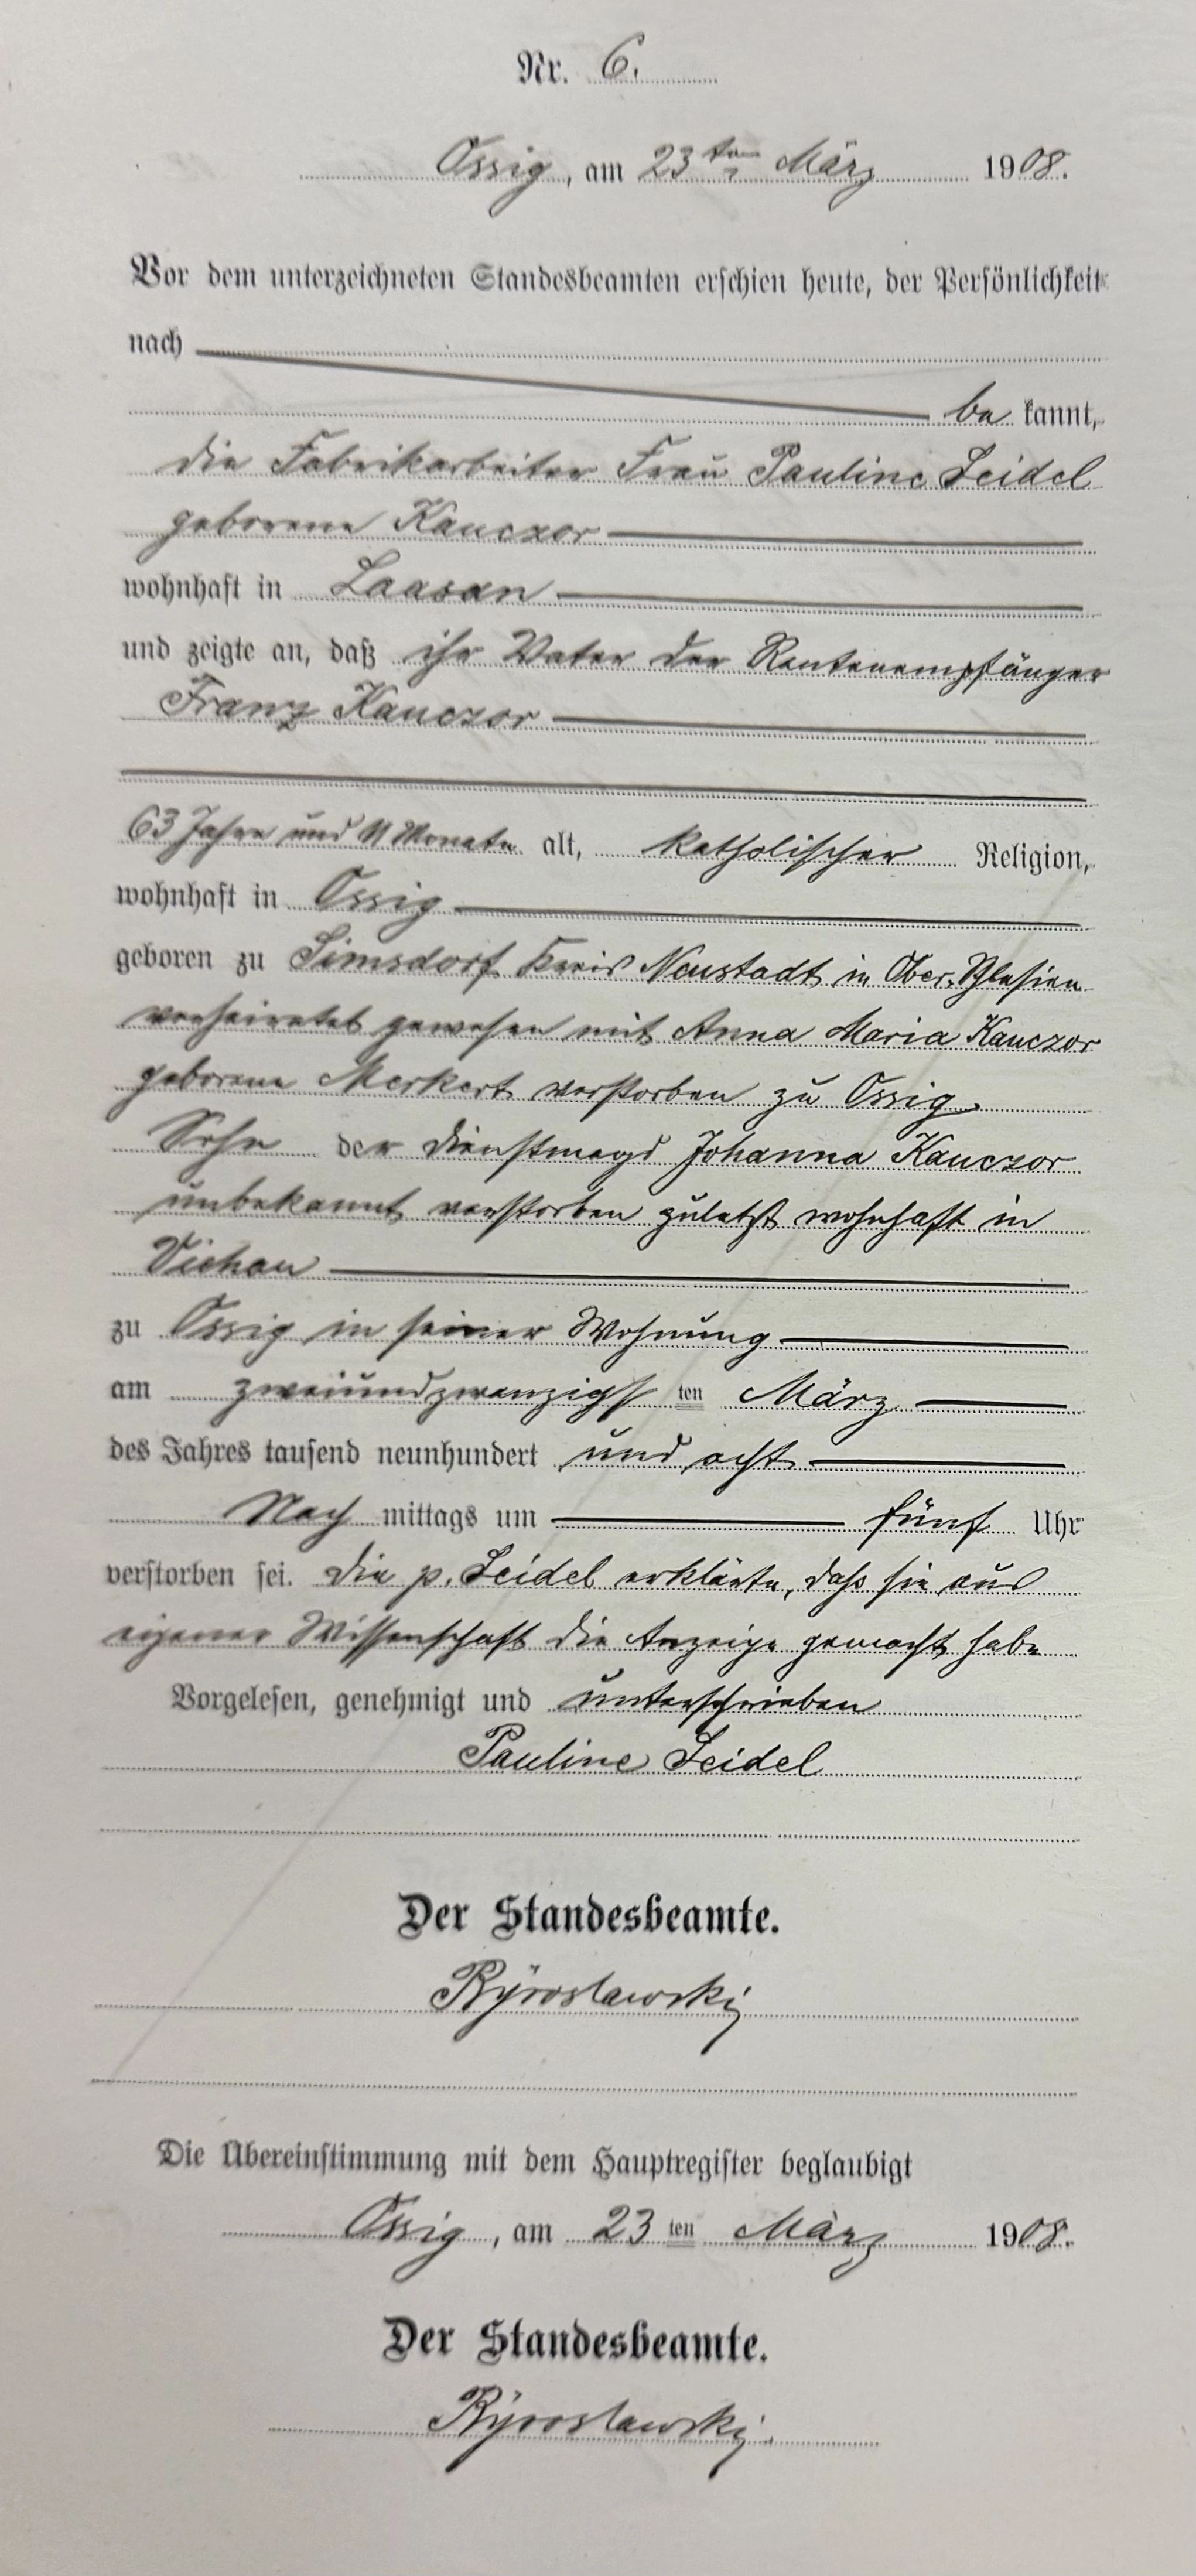 Nr. 6.
Ossig, am 23ten März 1908.
Vor dem unterzeichneten Standesbeamten erschien heute, der Persönlichkeit
nach
be kannt,
die Fabrikarbeiter Frau Pauline Seidel
geborene Kauczor
wohnhaft in Laasan
und zeigte an, daß ihr Vater der Rentenempfänger
Franz Kauczor
63 Jahre und 11 Monate alt, katholischer Religion,
wohnhaft in Ossig
geboren zu Simsdorf Kreis Neustadt in Ober-Schlesien
verheiratet gewesen mit Anna Maria Kauczor
geborene Merkert verstorben zu Ossig.
Sohn der Dienstmagd Johanna Kauczor
unbekannt verstorben zuletzt wohnhaft in
Viehau
zu Ossig in seiner Wohnung
am zweiundzwanzigsten März
des Jahres tausend neunhundert und acht
Nach mittags um fünf Uhr
verstorben sei. Die p. Seidel erklärte, daß sie aus
eigener Wissenschaft die Anzeige gemacht habe
Vorgelesen, genehmigt und unterschrieben
Pauline Seidel
Der Standesbeamte.
Die Übereinstimmung mit dem Hauptregister beglaubigt
Ossig, am 23 ten März 1908.
Der Standesbeamte.